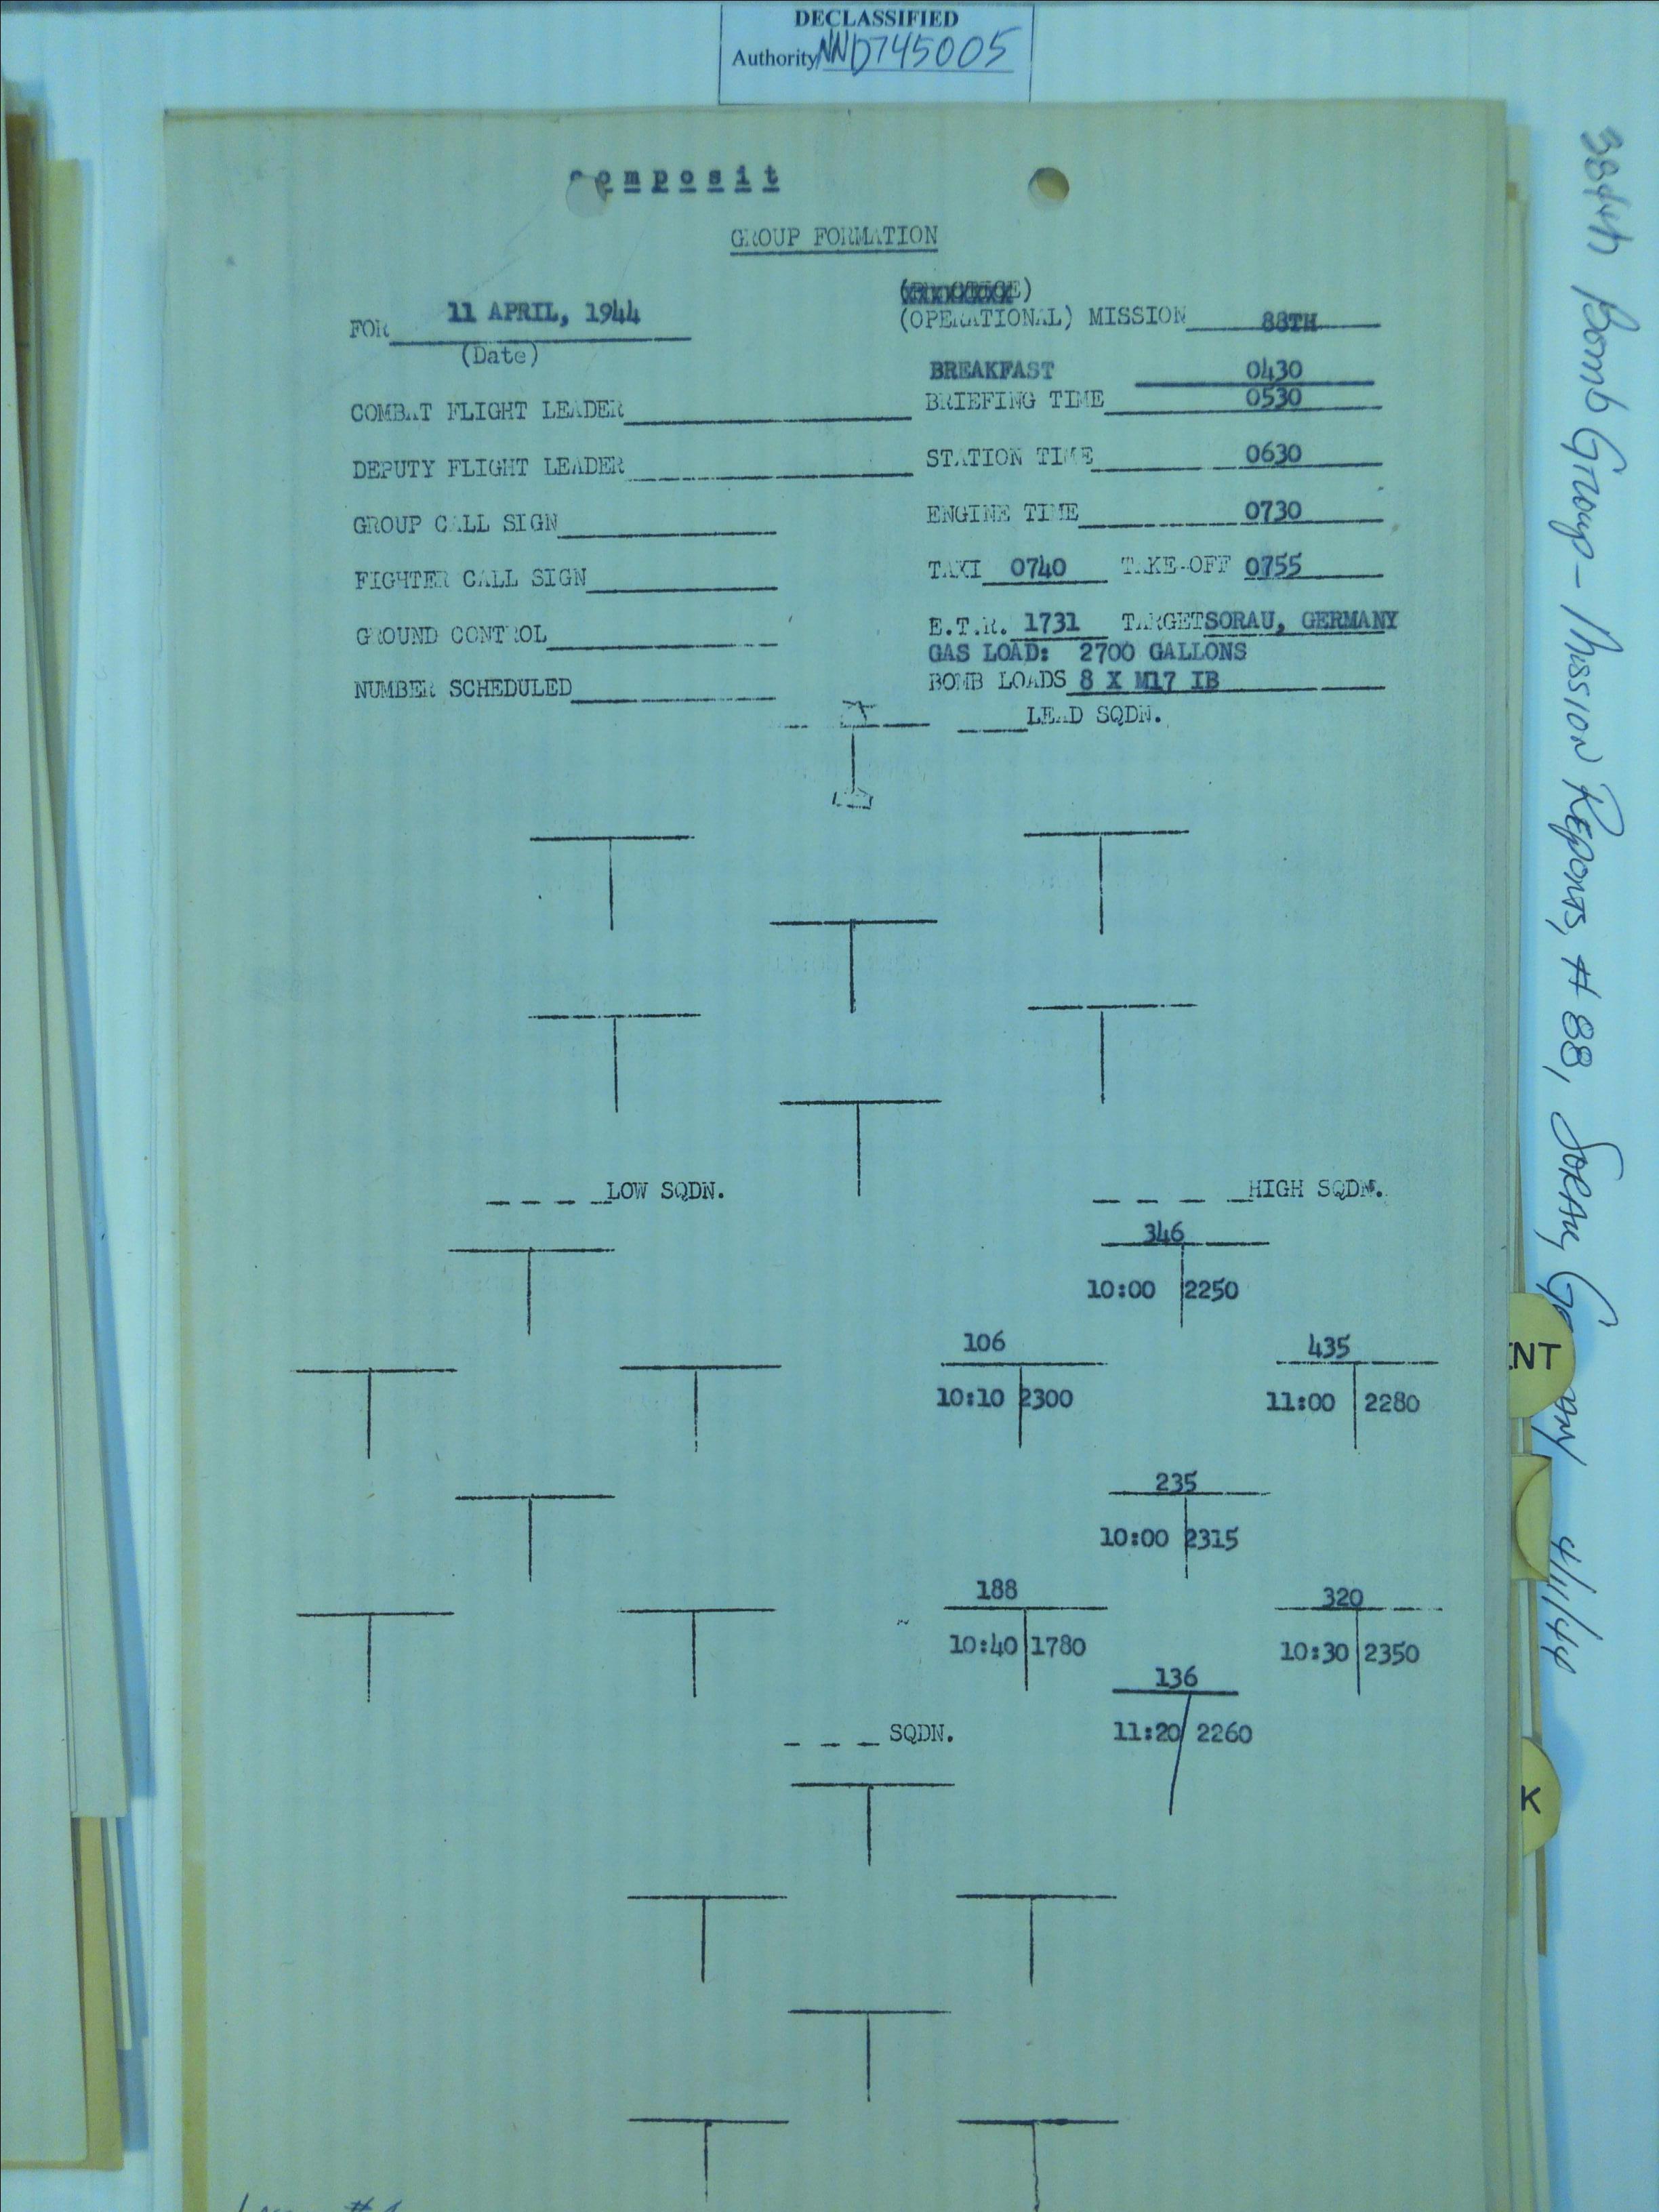 DECLASSIFIED
Authority NND745005
composit
GROUP FORMATION
FOR 11 APRIL, 1944
(Date)
(OPERATIONAL) MISSION 88TH
BREAKFAST 0430
COMBAT FLIGHT LEADER BRIEFING TIME 0530
DEPUTY FLIGHT LEADER STATION TIME 0630
GROUP CALL SIGN ENGINE TIME 0730
FIGHTER CALL SIGN TAXI 0740 TAKE-OFF 0755
GROUND CONTROL E.T.R. 1731 TARGET SORAU, GERMANY
GAS LOAD: 2700 GALLONS
NUMBER SCHEDULED BOMB LOADS 8 X M17 IB
LEAD SQDN.
LOW SQDN. HIGH SQDN.
346
10:00 2250
106 435
10:10 2300 11:00 2280
235
10:00 2315
188 320
10:40 1780 10:30 2350
136
SQDN. 11:20 2260
384th Bomb Group - Mission Reports, # 88, Sorau, Germany 4/11/44
NT
K